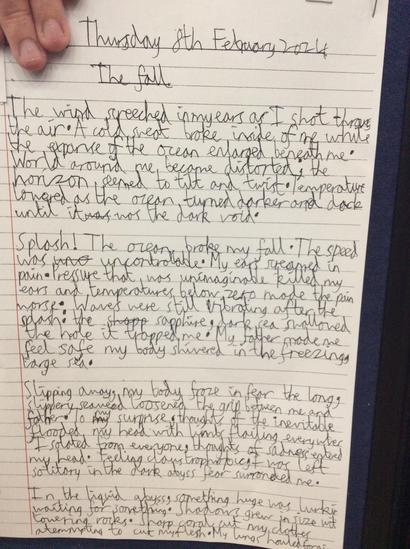 Thursday 8th February 2024
The fall
The wind screeched in my ears as I shot through
the air. A cold sweat broke inside of me while
the expanse of the ocean enlarged beneath me.
World around me became distorted, the
horizon seemed to tilt and twist. Temperature
lowered as the ocean turned darker and dark
until it was was the dark void.
Splash! The ocean broke my fall. The speed
was uncontrolable. My ears screamed in
pain. Pressure that was unimaginable killed my
ears and temperatures below zero made the pain
worse. Waves were still vibrating after the
splash. the sapphire, dark sea swallowed
the hole it trapped me. My father made me
feel safe my body shivered in the freezing,
large sea.
Slipping away, my body froze in fear the long,
slippery seaweed loosened the grip between me and
father. To my surprise, thoughts of the inevitable
flooded my head with limbs flailing everywhere
I isolated from everyone, thoughts of sadness entered
my head. Feeling claustrophobic, I was left
solitary in the dark abyss fear surrounded me.
In the liquid abyss, something huge was lurking
waiting for something. Shadows grew in size with
towering rocks. Sharp coral cut my clothes
attempting to cut my flesh. My lungs